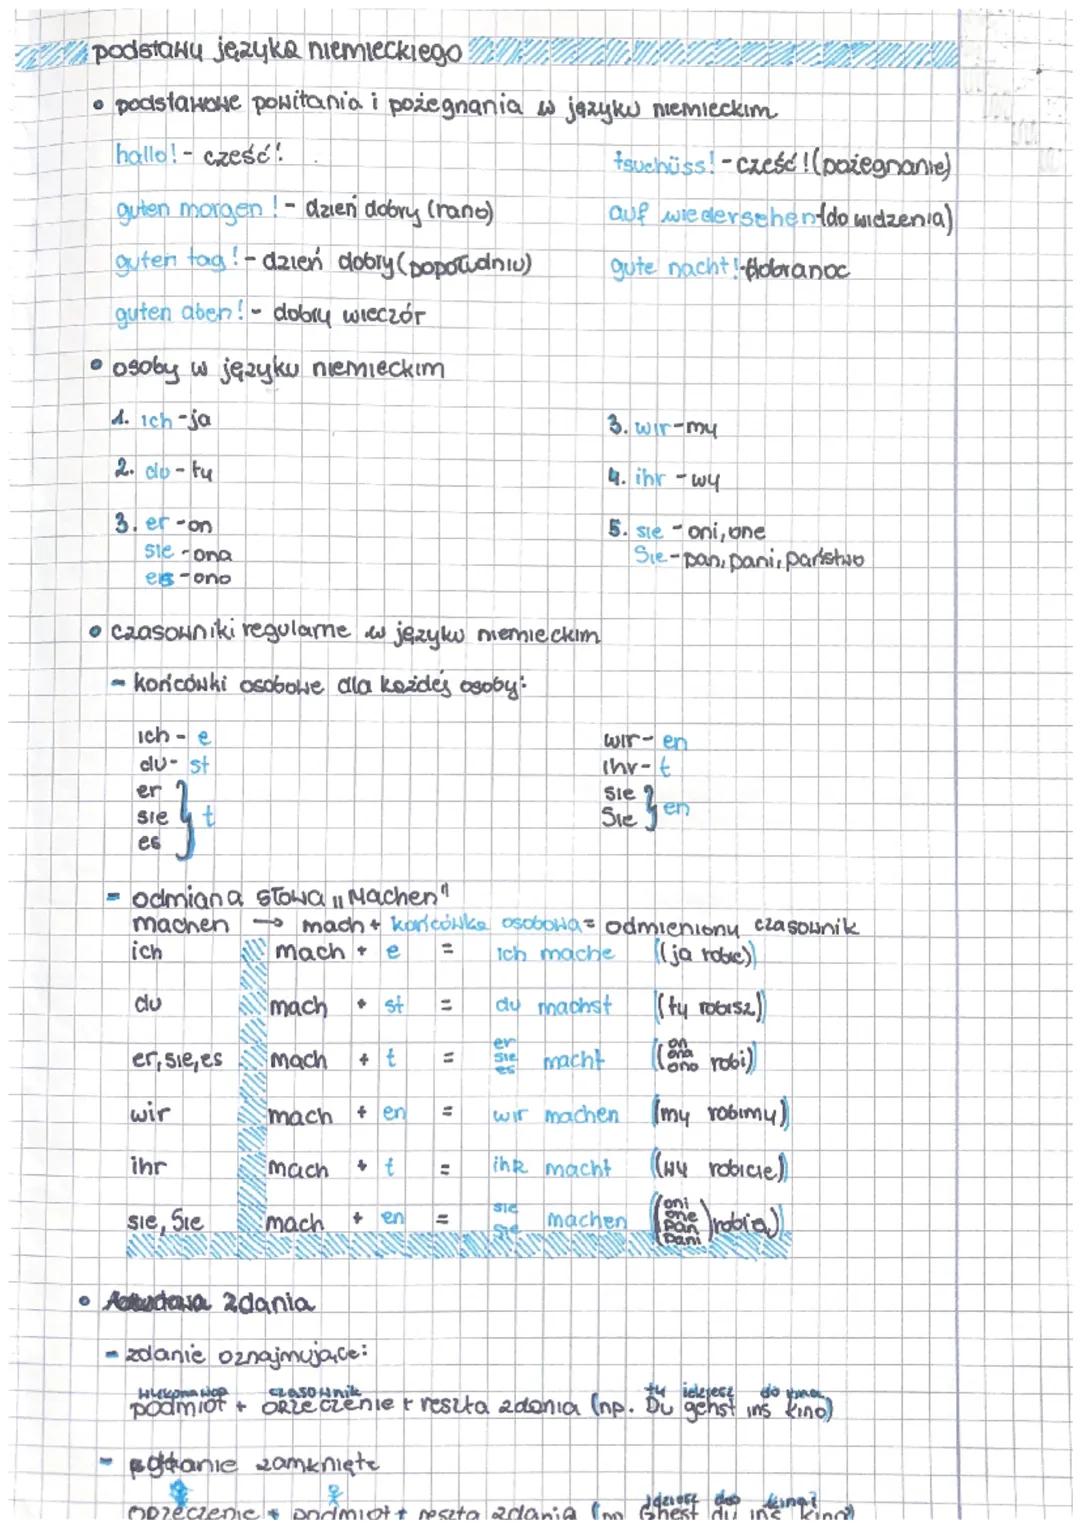 podstawy języka niemieckiego
• podstawowe powitania i pożegnania w języku niemieckim
hallo! - cześć!
tsuchüss! - cześć! (pożegnanie)
guten morgen! - dzień dobry (rano)
auf wiedersehen (do widzenia)
guten tag! - dzień dobry (popołudniu)
gute nacht! - dobranoc
guten aben! - dobry wieczór
• osoby w języku niemieckim
1. ich - ja
3. wir - my
2. du - ty
4. ihr - wy
3. er - on
5. sie - oni, one
sie - ona
Sie - pan, pani, państwo
es - ono
• czasowniki regularne w języku niemieckim
- końcówki osobowe dla każdej osoby:
ich - e
wir - en
du - st
ihr - t
er
sie } t
es
sie
Sie } en
- odmiana słowa „Machen"
machen → mach + końcówka osobowa = odmieniony czasownik
ich mach + e = ich mache (ja robię)
du mach + st = du machst (ty robisz)
er, sie, es mach + t = er sie es macht (on ona ono robi)
wir mach + en = wir machen (my robimy)
ihr mach + t = ihr macht (wy robicie)
sie, Sie mach + en = sie Sie machen (oni one pan pani) robią)
• zdania
- zdanie oznajmujące:
wykonawca czasownik ty idziesz do kina
podmiot + orzeczenie + reszta zdania (np. Du gehst ins kino)
- pytanie zamknięte
idziesz do kina?
orzeczenie + podmiot + reszta zdania (np Ghest du ins kino?)